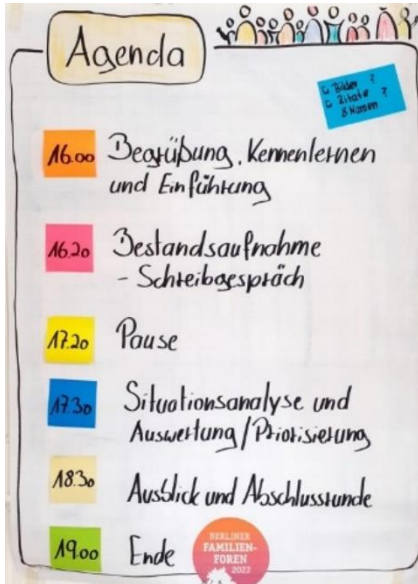 Agenda
□ Bilder ?
□ Zitate ?
& Namen
16.00 Begrüßung, Kennenlernen
und Einführung
16.20 Bestandsaufnahme
- Schreibgespräch
17.20 Pause
17.30 Situationsanalyse und
Auswertung/Priorisierung
18.30 Ausblick und Abschlussrunde
19.00 Ende
BERLINER
FAMILIEN-
FOREN
2022